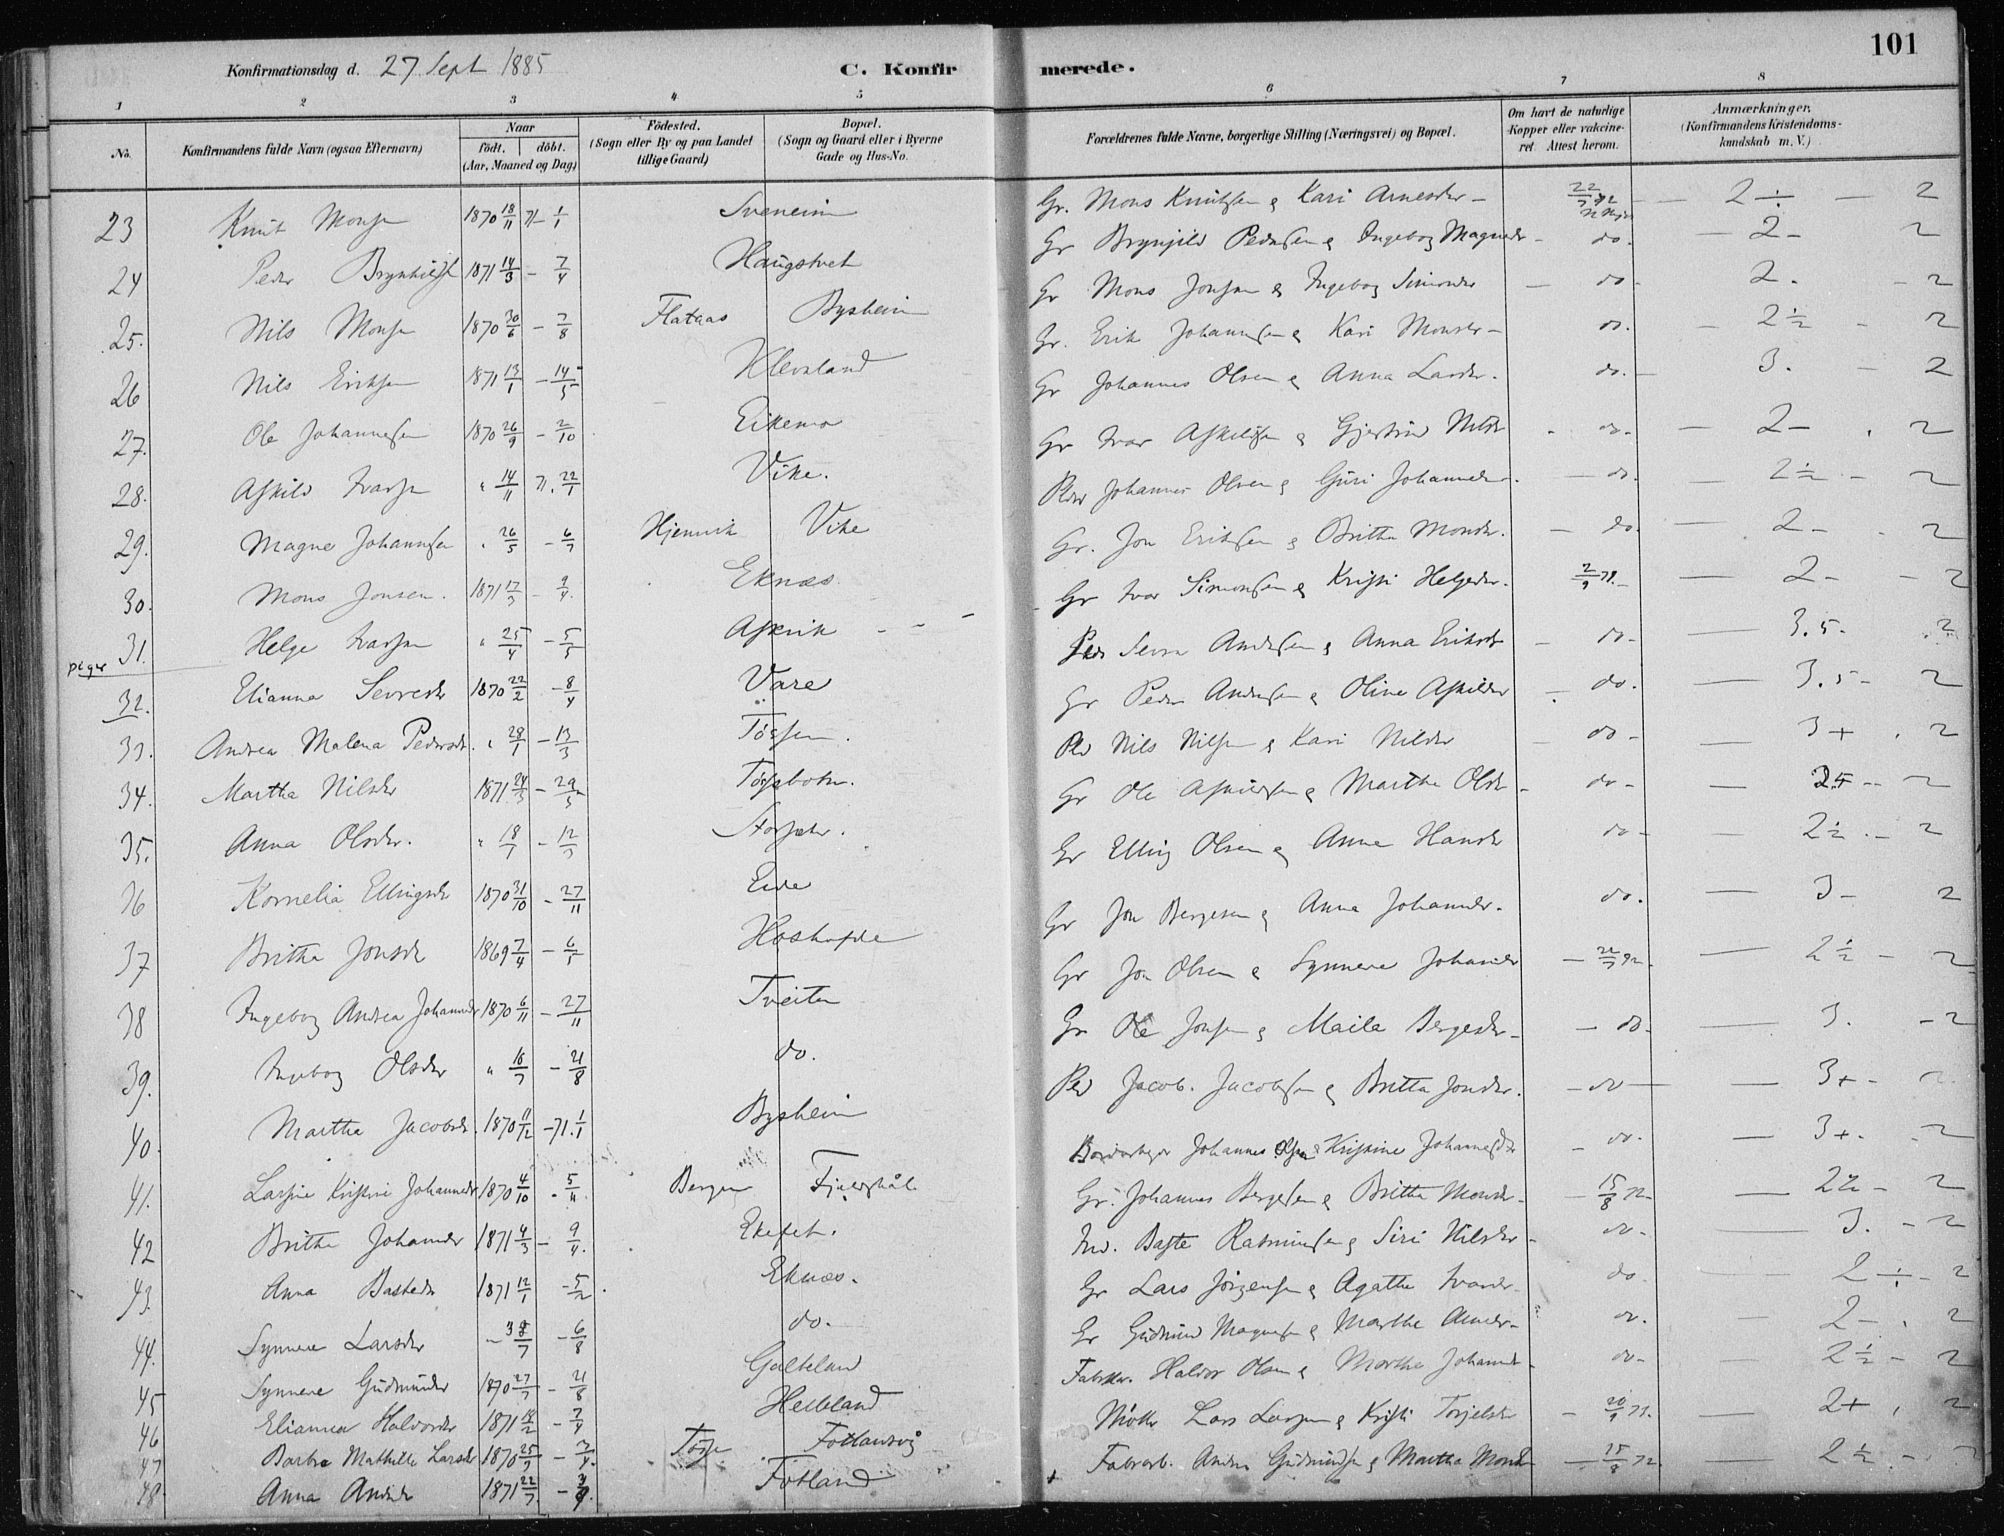 101
Konfirmationsdag d. 27 Sept 1885
C. Konfirmerede.
1 2 3 4 5 6 7 8
No.
Konfirmandens fulde Navn (ogsaa Efternavn)
Naar
födt. döbt.
(Aar, Maaned og Dag)
Födested.
(Sogn eller By og paa Landet
tillige Gaard)
Bopæl.
(Sogn og Gaard eller i Byerne
Gade og Hus-No.
Forældrenes fulde Navne, borgerlige Stilling (Næringsvei) og Bopæl.
Om havt de naturlige
Kopper eller vakcine-
ret. Attest herom.
Anmærkninger.
(Konfirmandens Kristendoms-
kundskab m. V.)
23 Knut Monsen 1870 18/11 71 1/1 Sveneim Gr. Mons Knutsen & Kari Arnesdr - 2 ÷ - 2
24 Peder 1871 14/3 - 7/4 Haugstvet Gr Brynjild Pedersen & Ingebog Magnedr - do. - 2 - 2
25. Nils Monsen 1870 30/6 - 7/8 Flataas Bysheim Gr Mons Jonsen & Ingebog Simondr - do - 2. - 2
26 Nils Eriksen 1871 13/1 - 14/5 Klevaland Gr. Erik Johannesen & Kari Monsdr - do. - 2 1/2 - 2
27. Ole Johannesen 1870 26/9 - 2/10 Eikemo Gr Johannes Olsen & Anna Larsdr. do. - 3. - 2
28. Askild Ivarsen " 14/11 71. 22/1 Vike. Gr Ivar Askildsen & Gjertrud Nilsdr - do - 2 - . 2
29. Magne Johannesen " 26/5 - 6/7 Hjemvik Vike Johannes Olsen & Guri Johannesdr - do. - 2 1/2 - 2
30. Mons Jonsen. 1871 17/3 - 9/4. Eknæs Gr. Jon Eriksen & Britha Monsdr. - do - 2 - . 2
31. Helge Ivarsen " 25/4 - 5/5 Askvik - - - Gr Ivar Simonsen & Kristi Helgedr. 2/9 78. - 2 - - 2
piger
32. Elianna Sevresdr 1870 22/2 - 8/4 Våre Andersen & Anna Eriksdr - do - 3.5 - . 2
33. Andrea Malena Pedersdr. " 28/1 - 13/3 Tössen. Gr Peder Andersen & Oline Askildsdr - do. - 3.5 - 2
34. Martha Nilsdr 1871 24/3 - 29/5 Tössebotn. Nils Nilsen & Kari Nilsdr - do - 3 + . 2
35. Anna Olsdr. " 18/7 - 12/7 Storsæter. Gr Ole Askildsen & Martha Olsdr - do - 2
36 Kornelia Ellingsdr 1870 31/10 - 27/11 Eide Gr Elling Olsen & Anna Hansdr do - 2 1/2 . - 2
37 Britha Jonsdr 1869 7/4 - 6/5 Hoshovde Gr Jon Bergesen & Anna Johannesdr. do. - 3 - 2
38 Ingebog Andrea Johannesdr 1870 6/11 - 27/11 Tveiten Gr Jon Olsen & Synneve Johannesdr - 2 1/2 - 2
39. Ingebog Olsdr " 16/7 - 21/8 do. Gr Ole Jonsen & Maila Bergesdr - do - 3. - 2
40. Martha Jacobsdr. 1870 11/12 - 71. 1/1 Bysheim Jacob. Jacobsen & Britta Jonsdr. - do - 3 + - 2
41. Larsine Kristine Johannesdr 1870 4/10 - 5/11. Bergen Fjeldskål Johannes Olsen & Kristine Johannesdr - do. - 3 + . - 2
42 Britha Johannesdr 1871 4/3 - 9/4. Ekeset. Gr. Johannes Bergesen & Britta Monsdr - - 15/8 72 - 2 1/2 - 2
43. Anna Bastesdr 1871 12/1 - 5/2 Eknæs. Ind. Baste Rasmussen & Siri Nilsdr - do - 3. - 2
44. Synneve Larsdr - 6/8 do. Gr Lars Jörgensen & Agatha Ivarsdr - do - 2 ÷ - 2
45 Synneve Gudmundsdr 1870 27/7 - 21/8 Galteland Gr Gudmund Magnesen & Martha - do. - 2 - . 2
46 Elianna Halvorsdr 1871 14/2 - 7/4 Helleland Halvor Olsen & Martha Johannesdr do - 2 1/2 - 2
47 Barbra Mathilde Larsdr 1870 25/7 Tösse Fotlandsvåg Lars Larsen & Kristi Torjelsdr - 20/9 71. - 2 + . 2
48. Anna Andersdr 1871 22/7. Fotland + Fabrarb. Anders Gudmundsen & Martha Monsdr - 15/8 72. - 2 1/2 - . 2